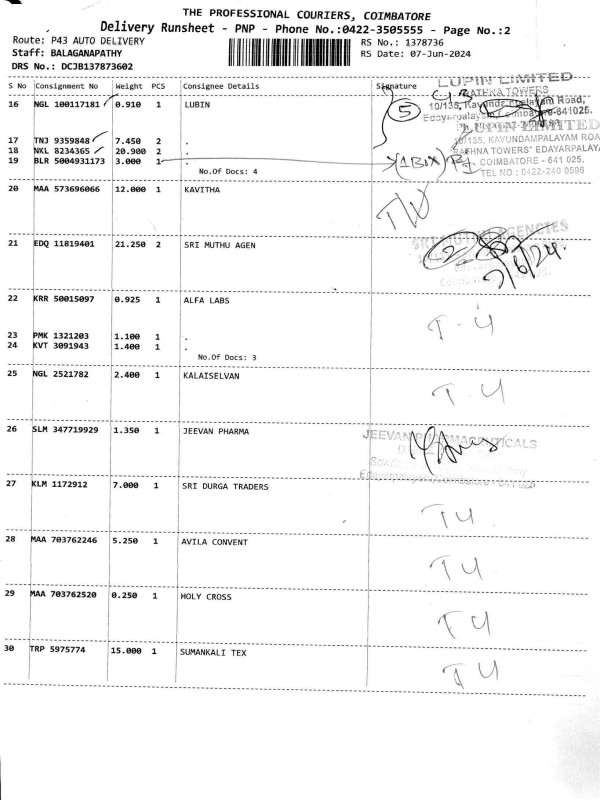 THE PROFESSIONAL COURIERS, COIMBATORE
Delivery Runsheet - PNP - Phone No.:0422-3505555 - Page No.:2
Route: P43 AUTO DELIVERY RS No.: 1378736
Staff: BALAGANAPATHY RS Date: 07-Jun-2024
DRS No.: DCJB137873602
S No Consignment No Weight PCS Consignee Details Signature
LUPIN LIMITED
RATHNA TOWERS
16 NGL 100117181 0.910 1 LUBIN 5 10/135, Kavundampalayam Road,
Edayarpalayam, Coimbatore-641025.
LUPIN LIMITED
17 TNJ 9359848 7.450 2 . 10/135, KAVUNDAMPALAYAM ROA
18 NKL 8234365 20.900 2 . RATHNA TOWERS" EDAYARPALAYA
19 BLR 5004931173 3.000 1 . (1 BOX) COIMBATORE - 641 025.
No.Of Docs: 4 TEL NO : 0422-240 0596
20 MAA 573696066 12.000 1 KAVITHA
21 EDQ 11819401 21.250 2 SRI MUTHU AGEN AGENCIES
2
7/6/24
22 KRR 50015097 0.925 1 ALFA LABS T-4
23 PMK 1321203 1.100 1 .
24 KVT 3091943 1.400 1 .
No.Of Docs: 3
25 NGL 2521782 2.400 1 KALAISELVAN T.4
26 SLM 347719929 1.350 1 JEEVAN PHARMA JEEVAN PHARMACEUTICALS
27 KLM 1172912 7.000 1 SRI DURGA TRADERS T4
28 MAA 703762246 5.250 1 AVILA CONVENT T4
29 MAA 703762520 0.250 1 HOLY CROSS T4
30 TRP 5975774 15.000 1 SUMANKALI TEX T4